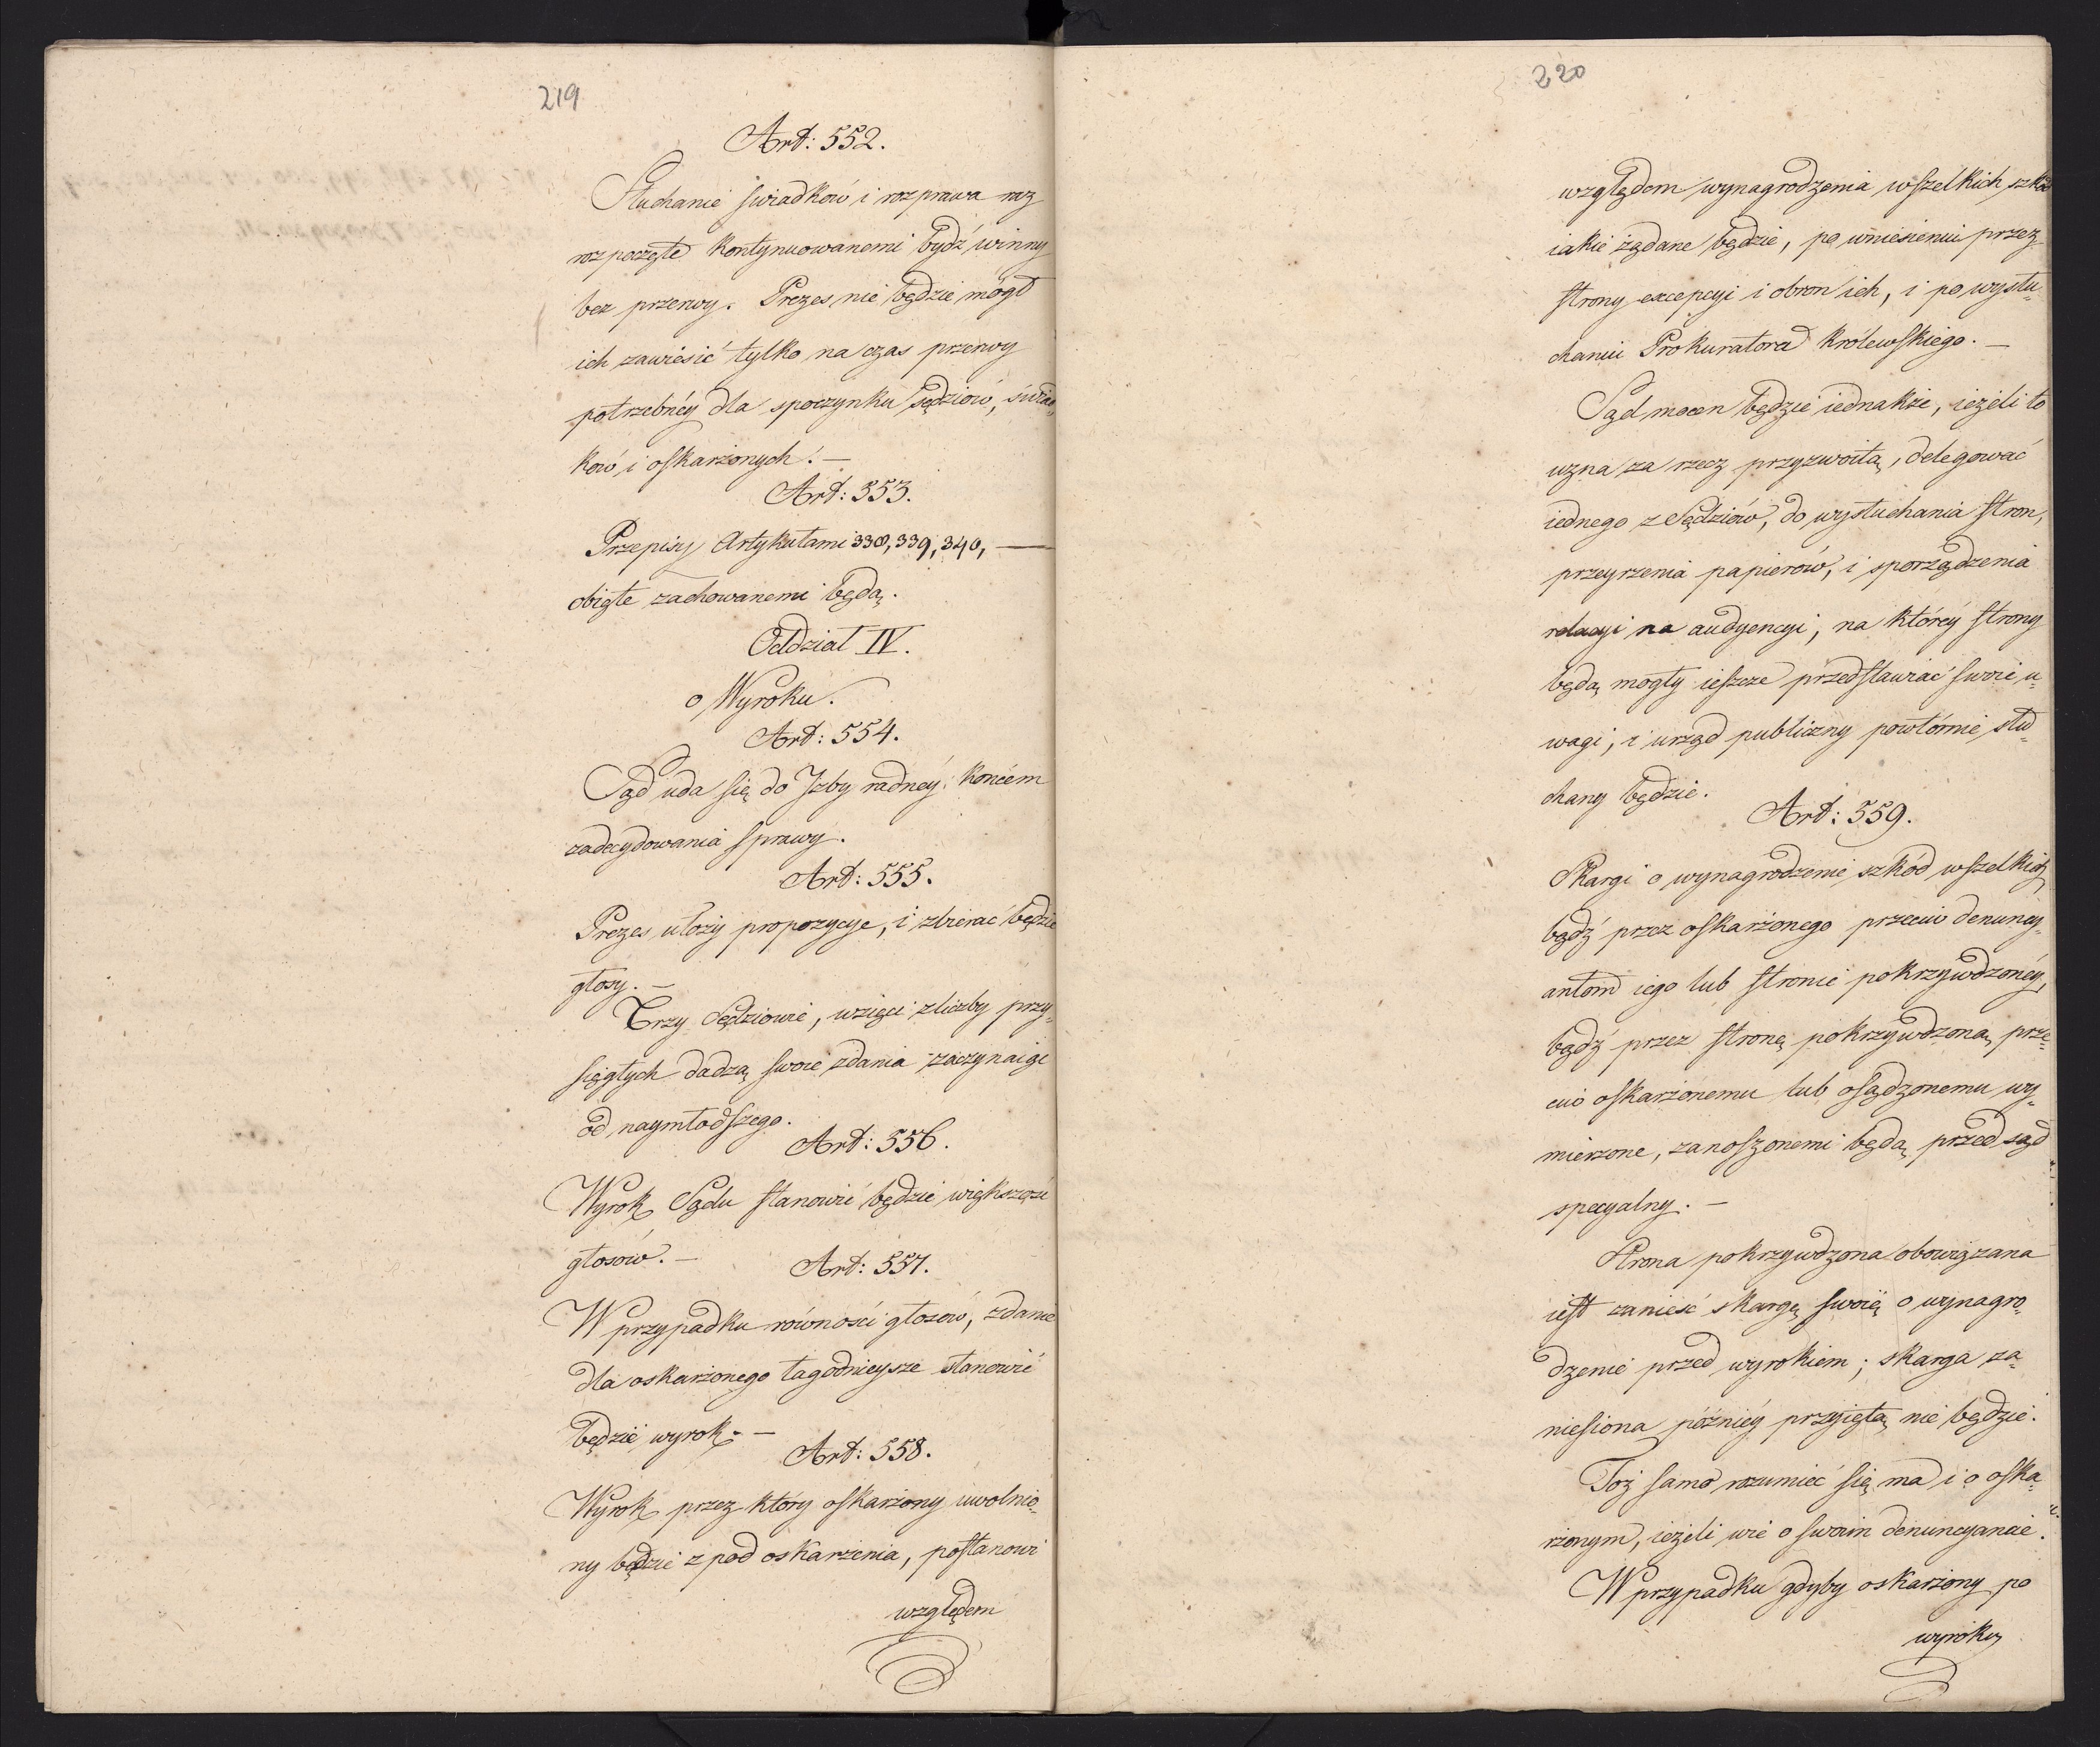 219
Art: 552.
Słuchanie świadków i rozprawa raz
rozpoczęte kontynuowanemi bydź winny
bez przerwy. Prezes nie będzie mógł
ich zawiesić tylko na czas przerwy
potrzebnéy dla spoczynku sędziów, świad=
ków i oskarżonych. —
Art: 553.
Przepisy Artykułami 338, 339, 340, —
obięte zachowanemi będą.
Oddział IV.
o Wyroku.
Art: 554.
Sąd uda się do Izby radnéy, końcem
zadecydowania sprawy.
Art: 555.
Prezes ułoży propozycye, i zbierać będzie
głosy. —
Trzy Sędziowie, wzięci z liczby przy=
sięgłych dadzą swoie zdania zaczynaiąc
od naymłodszego.
Art: 556.
Wyrok Sądu stanowić będzie większość
głosów. —
Art: 557.
W przypadku równości głosów, zdanie
dla oskarżonego łagodnieysze stanowić
będzie wyrok. —
Art: 558.
Wyrok przez który oskarżony uwolnio=
ny będzie z pod oskarżenia, postanowi
względem
220
względem wynagrodzenia wszelkich szkód
iakie żądane będzie, po wniesieniu przez
strony excepcyi i obron ich, i po wysłu=
chaniu Prokuratora Królewskiego. —
Sąd mocen będzie iednakże, ieżeli to
uzna za rzecz przyzwoitą, delegować
iednego z Sędziów, do wysłuchania stron,
przeyrzenia papierów, i sporządzenia
relacyi na audyencyi, na któréy strony
będą mogły ieszcze przedstawiać swoie u=
wagi, i urząd publiczny powtórnie słu=
chany będzie.
Art: 559.
Skargi o wynagrodzenie szkód wszelkich
bądź przez oskarżonego przeciw denuncy=
antom iego lub stronie pokrzywdzonéy,
bądź przez stronę pokrzywdzoną prze=
ciw oskarżonemu lub osądzonemu wy=
mierzone, zanoszonemi będą przed sąd
specyalny. —
Strona pokrzywdzona obowiązana
iest zanieść skargę swoię o wynagro=
dzenie przed wyrokiem; skarga za=
niesiona późniéy przyiętą nie będzie.
Toż samo rozumieć się ma i o oska=
rżonym, ieżeli wie o swoim denuncyancie.
W przypadku gdyby oskarżony po
wyroku